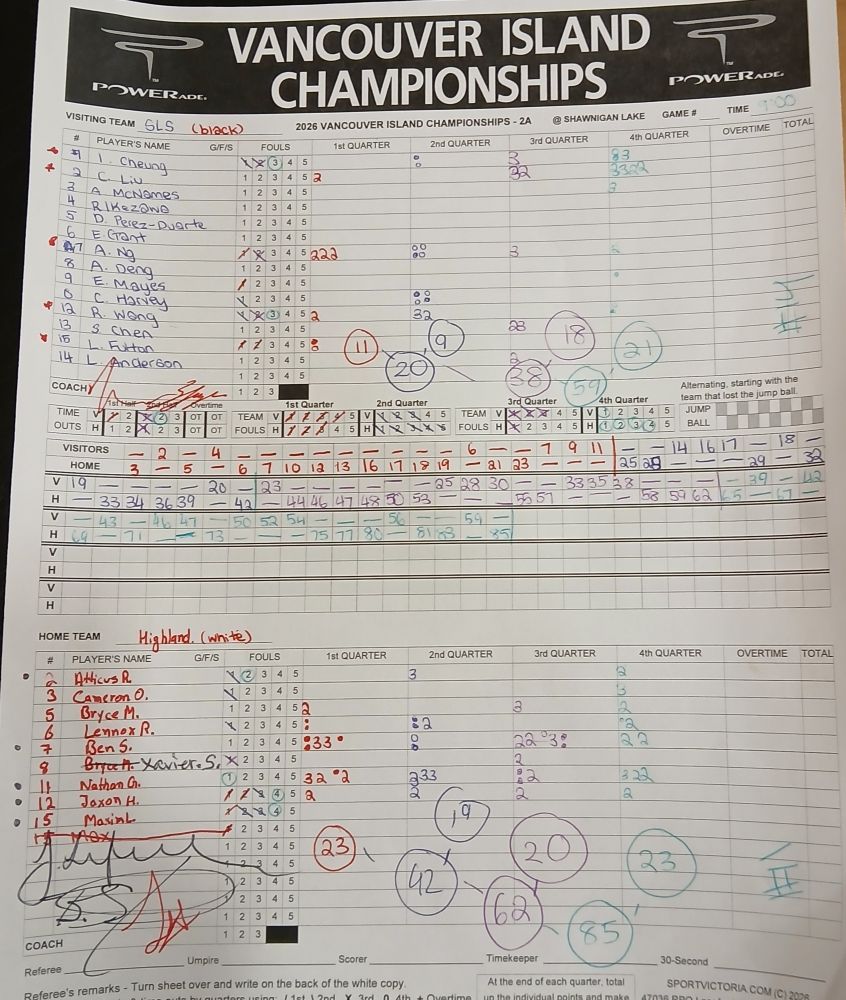 VANCOUVER ISLAND
CHAMPIONSHIPS
POWERADE.
POWERADE.
VISITING TEAM GLS (black) 2026 VANCOUVER ISLAND CHAMPIONSHIPS - 2A @ SHAWNIGAN LAKE GAME # TIME 9:00
# PLAYER'S NAME G/F/S FOULS 1st QUARTER 2nd QUARTER 3rd QUARTER 4th QUARTER OVERTIME TOTAL
1 I. Cheung 1 2 3 4 5 3
2 C. Liu 1 2 3 4 5 2 32 3322
3 A. McNames 1 2 3 4 5
4 1 2 3 4 5
5 D. Perez-Duarte 1 2 3 4 5
6 E. Grant 1 2 3 4 5
7 A. Ng 1 2 3 4 5 222 3
8 A. Deng 1 2 3 4 5
9 E. Mayes 1 2 3 4 5
0 C. Harvey 1 2 3 4 5
12 R. Wong 1 2 3 4 5 2 32
13 S. Chen 1 2 3 4 5 23
15 L. Fulton 1 2 3 4 5 11 9 18 21
14 L. Anderson 1 2 3 4 5 20 2 38 59
COACH 1 2 3
Alternating, starting with the
team that lost the jump ball.
1st Half 2nd Half Overtime 1st Quarter 2nd Quarter 3rd Quarter 4th Quarter
TIME V 1 2 X 2 3 OT OT TEAM V 1 2 3 4 5 V 1 2 3 4 5 TEAM V 1 2 3 4 5 V 1 2 3 4 5 JUMP
OUTS H 1 2 X 2 3 OT OT FOULS H 1 2 3 4 5 H 1 2 3 4 5 FOULS H 1 2 3 4 5 H 1 2 3 4 5 BALL
VISITORS — 2 — 4 — — — — — — — — — 6 — — 7 9 11 — — 14 16 17 — 18 —
HOME 3 — 5 — 6 7 10 12 13 16 17 18 19 — 21 23 — — — 25 28 — — — 29 — 32
V 19 — — — — 20 — 23 — — — — — — 25 28 30 — — 33 35 38 — — — — 39 — 42
H — 33 34 36 39 — 42 — 44 46 47 48 50 53 — — — 55 57 — — — 58 59 62 65 — 67 —
V — 43 — 46 47 — 50 52 54 — — — 56 — — 59 —
H 69 — 71 — — 73 — — — 75 77 80 — 81 83 — 85
V
H
V
H
HOME TEAM Highland. (white)
# PLAYER'S NAME G/F/S FOULS 1st QUARTER 2nd QUARTER 3rd QUARTER 4th QUARTER OVERTIME TOTAL
2 Atticus R. 1 2 3 4 5 3 2
3 Cameron O. 1 2 3 4 5 3
5 Bryce M. 1 2 3 4 5 2 2 2
6 Lennox R. 1 2 3 4 5 2 2
7 Ben S. 1 2 3 4 5 33 22 3 22
8 Xavier. S. X 2 3 4 5 2
11 Nathan G. 1 2 3 4 5 32 2 233 2 322
12 Jaxon H. 1 2 3 4 5 2 2 2 2
15 Maxim L 1 2 3 4 5 19
Max 1 2 3 4 5 23 20 23
1 2 3 4 5 42
1 2 3 4 5 62
1 2 3 4 5 85
1 2 3 4 5
COACH 1 2 3
Referee Umpire Scorer Timekeeper 30-Second
Referee's remarks - Turn sheet over and write on the back of the white copy.
At the end of each quarter, total
SPORTVICTORIA.COM (C) 2026
up the individual points and make